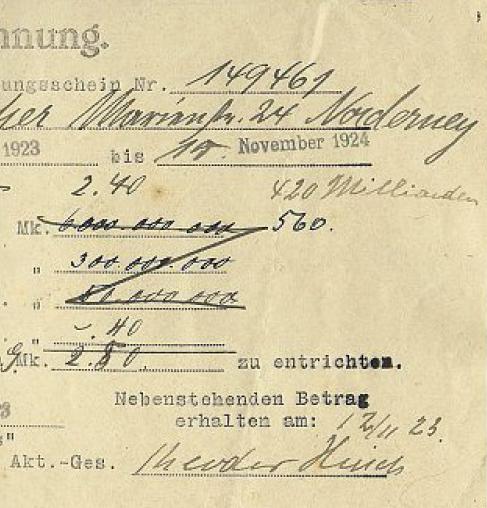 nnung.
ungsschein Nr. 149461
Marienstr. 24 Norderney
1923 bis 15. November 1924
2.40 420 Milliarden
Mk. 6000.000.000 560.
" 300.000.000
" 80.000.000
" -.40
G Mk. 2.80. zu entrichten.
Nebenstehenden Betrag
23 erhalten am: 12/11 23.
"
Akt.-Ges. Theodor Hirsch